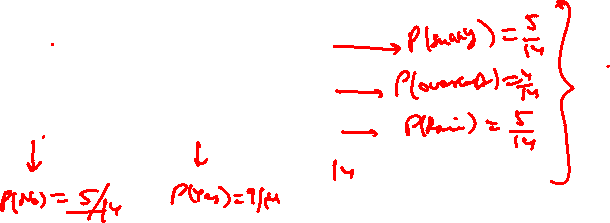 → P(sunny) = 5/14
→ P(overcast) = 4/14
→ P(Rain) = 5/14
14
P(No) = 5/14 P(Yes) = 9/14